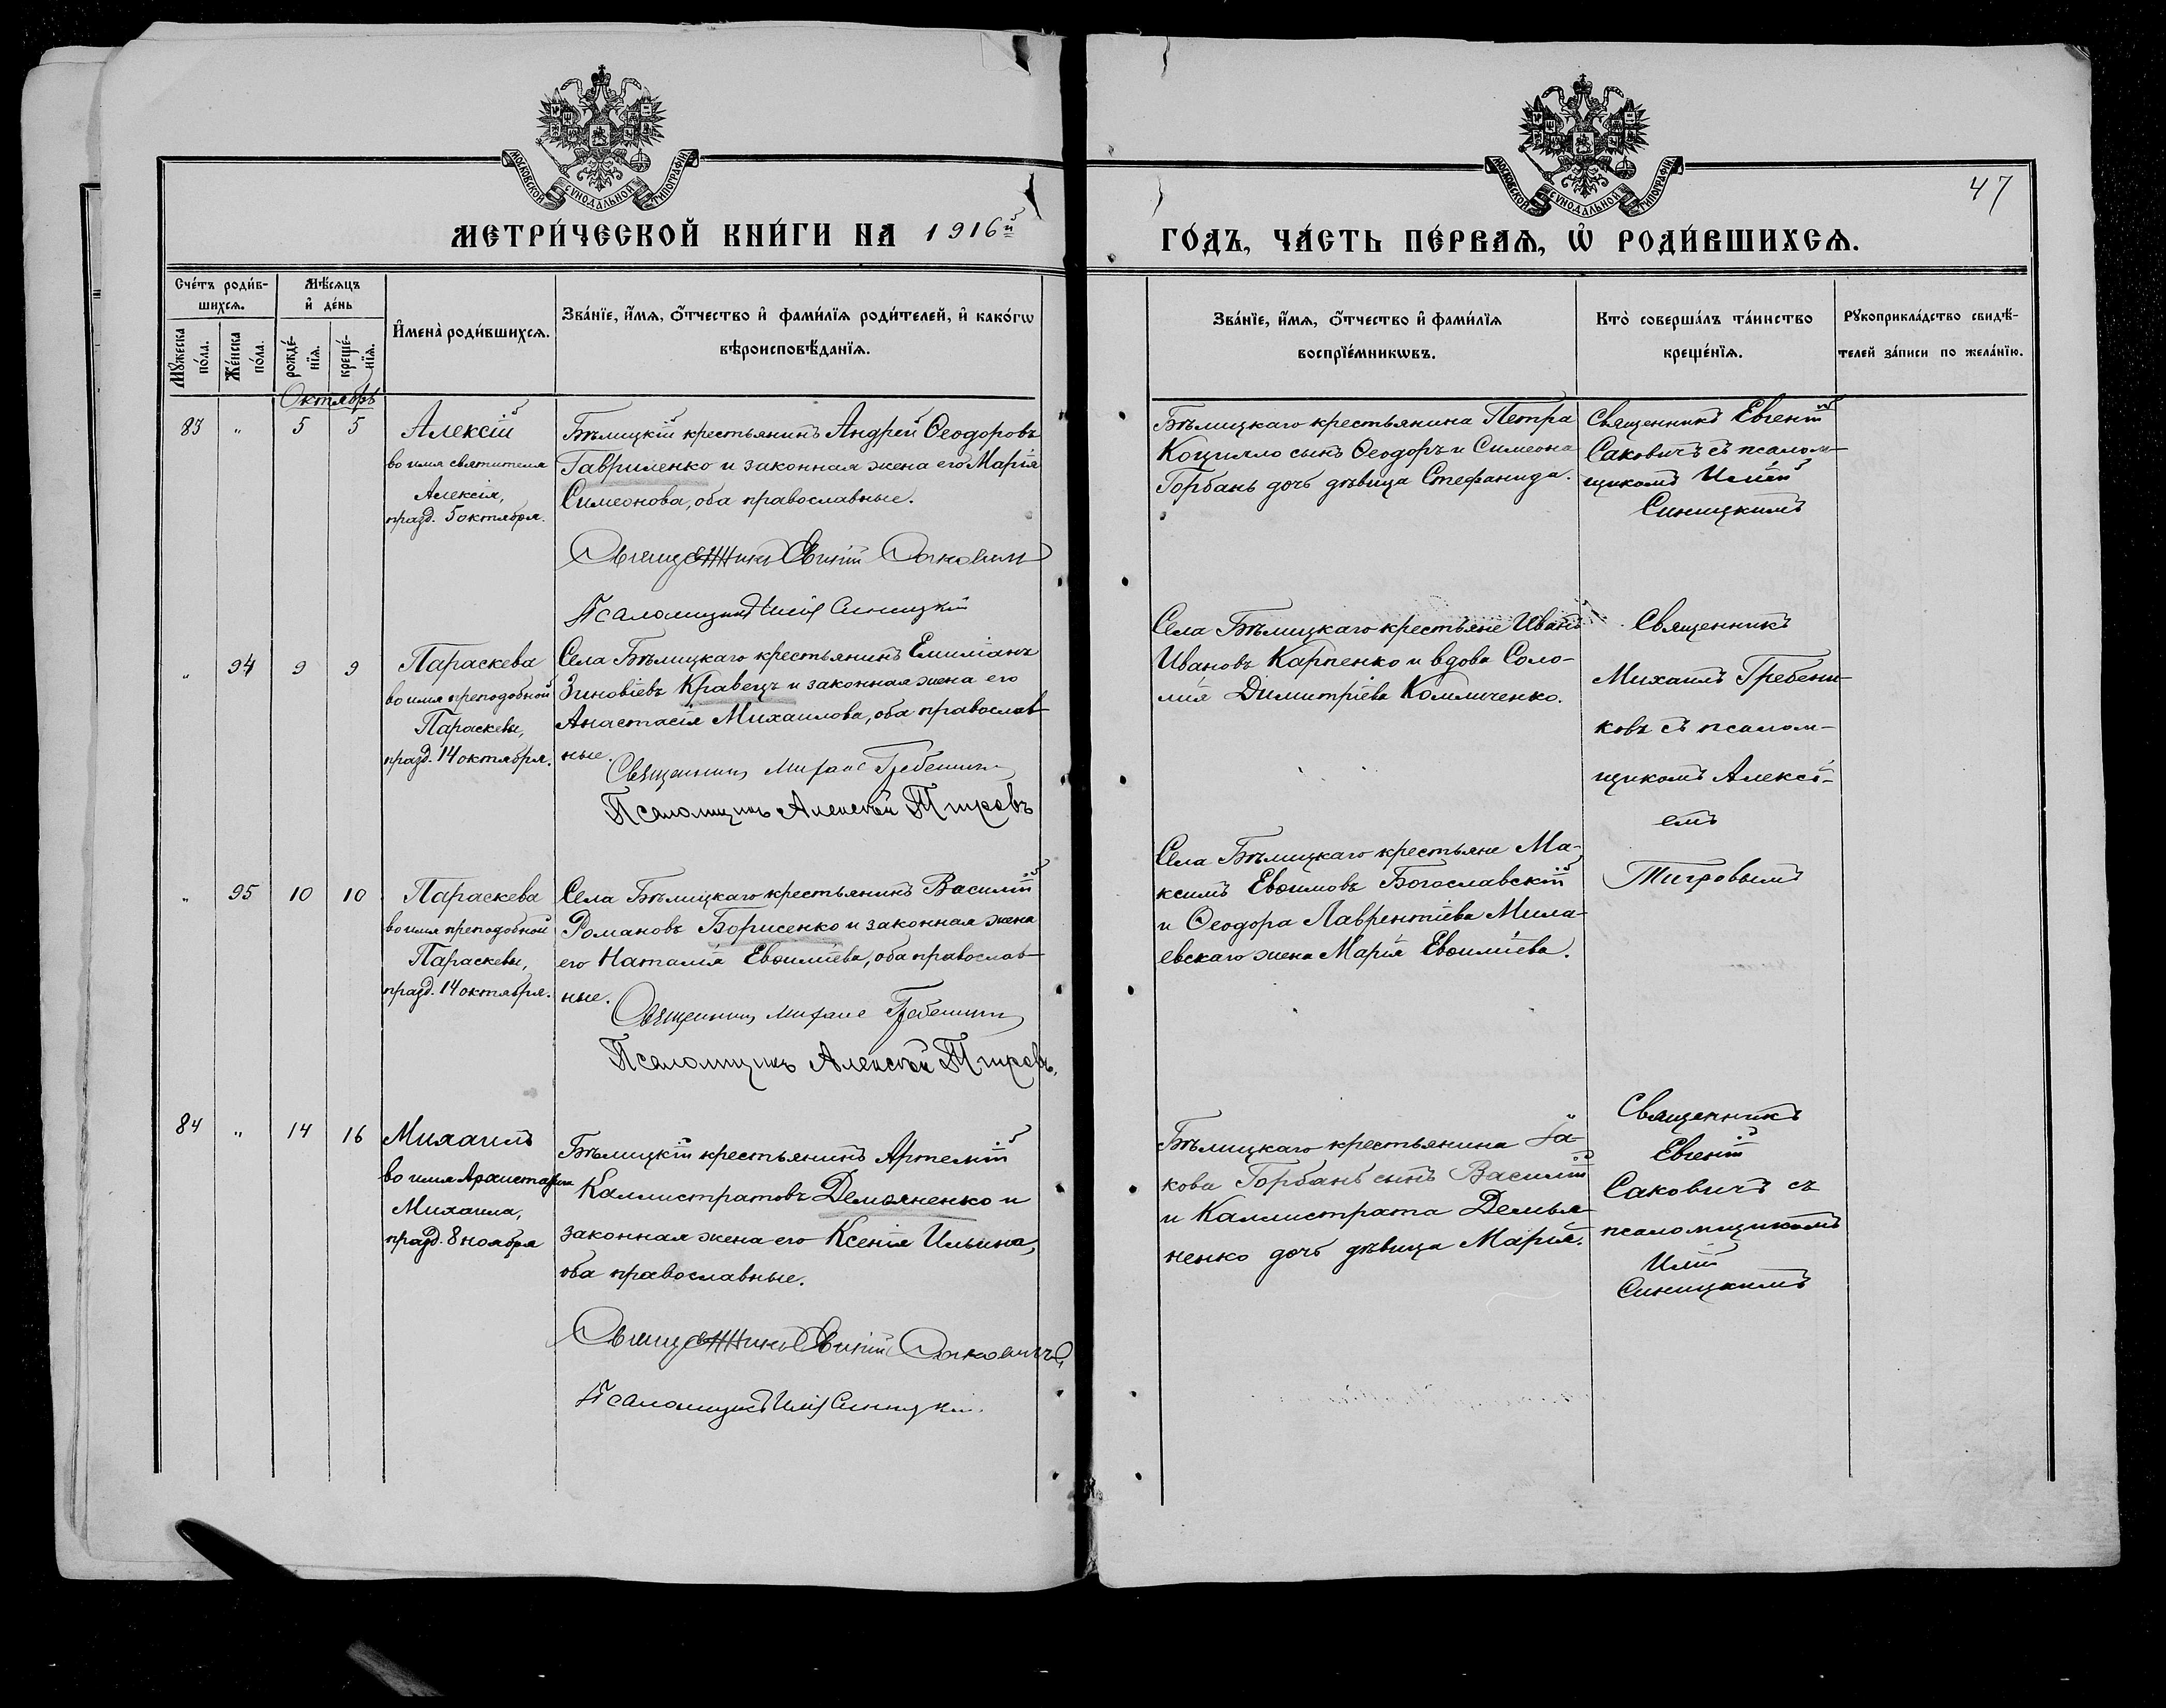 МОСКОВСКОЙ СѴНОДАЛЬНОЙ ТИПОГРАФІИ
МОСКОВСКОЙ СѴНОДАЛЬНОЙ ТИПОГРАФІИ
47
МЕТРИ́ЧЕСКОЙ КНИ́ГИ НА 1916й
ГО́ДЪ, ЧА́СТЬ ПЕ́РВАѦ, Ѡ҆ РОДИ́ВШИХСѦ.
Сче́тъ роди́в-
шихсѧ.
Мꙋ́жеска
по́ла.
Же́нска
по́ла.
Мѣ́сѧцъ
и҆ де́нь
рожде́-
нїѧ.
креще́-
нїѧ.
И҆мена̀ роди́вшихсѧ.
Зва́нїе, и҆́мѧ, ѻ҆́тчество и҆ фами́лїѧ роди́телей, и҆ како́гѡ
вѣроисповѣ́данїѧ.
Зва́нїе, и҆́мѧ, ѻ҆́тчество и҆ фами́лїѧ
воспрїе́мникѡвъ.
Кто̀ соверша́лъ та́инство
креще́нїѧ.
Рꙋкоприкла́дство свидѣ́-
телей за́писи по жела́нїю.
Октябрь
83 " 5 5
Алексій
во имя святителя
Алексія,
празд. 5 октября.
Бѣлицкій крестьянинъ Андрей Ѳеодоровъ
Гавриленко и законная жена его Марія
Симеонова, оба православные.
Священникъ Евгеній Саковичъ
Псаломщикъ Илія Синицкій
Бѣлицкаго крестьянина Петра
Коцилло сынъ Ѳеодоръ и Симеона
Горбань дочь дѣвица Стефанида.
Священникъ Евгеній
Саковичъ съ псалом-
щикомъ Иліей
Синицкимъ
" 94 9 9
Параскева
во имя преподобной
Параскевы,
празд. 14 октября.
Села Бѣлицкаго крестьянинъ Емиліанъ
Зиновіевъ Кравецъ и законная жена его
Анастасія Михаилова, оба православ-
ные.
Священникъ Михаилъ Гребенник
Псаломщикъ Алексѣй Тигровъ
Села Бѣлицкаго крестьяне Иванъ
Ивановъ Карпенко и вдова Соло-
мія Димитріева
Священникъ
Михаилъ Гребенни-
ковъ съ псалом-
щикомъ Алексѣ-
емъ
Тигровымъ
" 95 10 10
Параскева
во имя преподобной
Параскевы,
празд. 14 октября.
Села Бѣлицкаго крестьянинъ Василій
Романовъ Борисенко и законная жена
его Наталія Евѳиміева, оба православ-
ные.
Священникъ Михаилъ Гребенник
Псаломщикъ Алексѣй Тигровъ.
Села Бѣлицкаго крестьяне Ма-
ксимъ Евѳимовъ Богославскій
и Ѳеодора Лаврентіева Мила-
евскаго жена Марія Евѳиміева.
84 " 14 16
Михаилъ
во имя Архистратига
Михаила,
празд. 8 ноября
Бѣлицкій крестьянинъ Артемій
Каллистратовъ Демьяненко и
законная жена его Ксенія Ильина,
оба православные.
Священникъ Евгеній Саковичъ
Псаломщикъ Илія Синицкій.
Бѣлицкаго крестьянина Іа-
кова Горбань сынъ Василій
и Каллистрата Демья-
ненко дочь дѣвица Марія.
Священникъ
Евгеній
Саковичъ съ
псаломщикомъ
Иліей
Синицкимъ